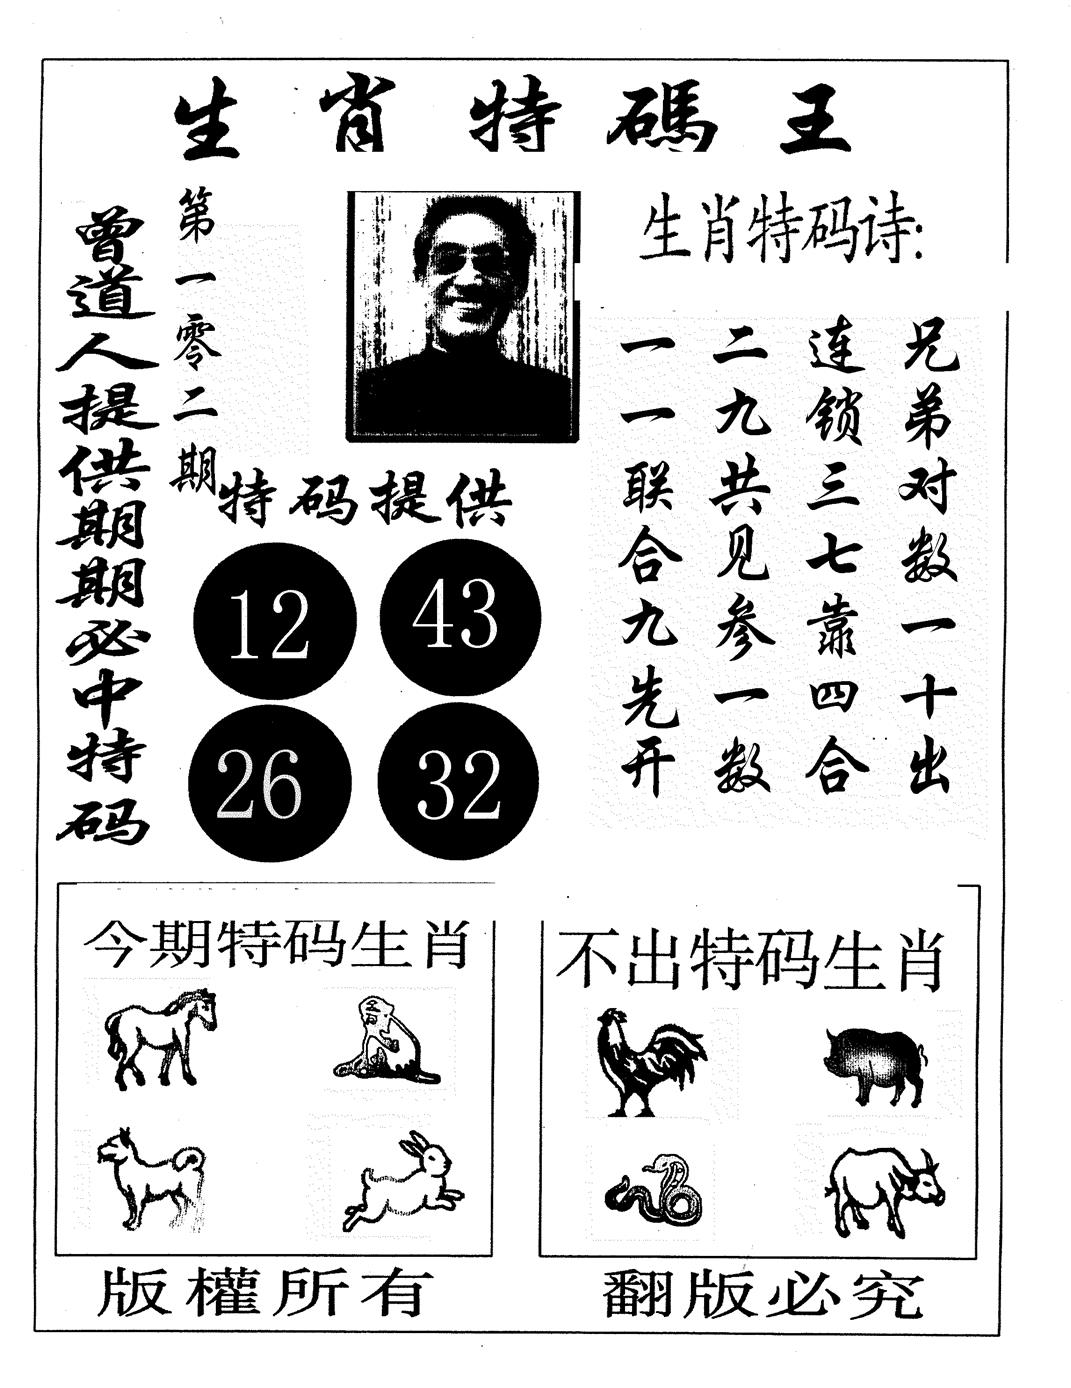 生肖特碼王
曾道人提供期期必中特码
第一零二期
生肖特码诗:
兄弟对数一十出
连锁三七靠四合
二九共见参一数
一一联合九先开
特码提供
12 43
26 32
今期特码生肖
不出特码生肖
版權所有
翻版必究